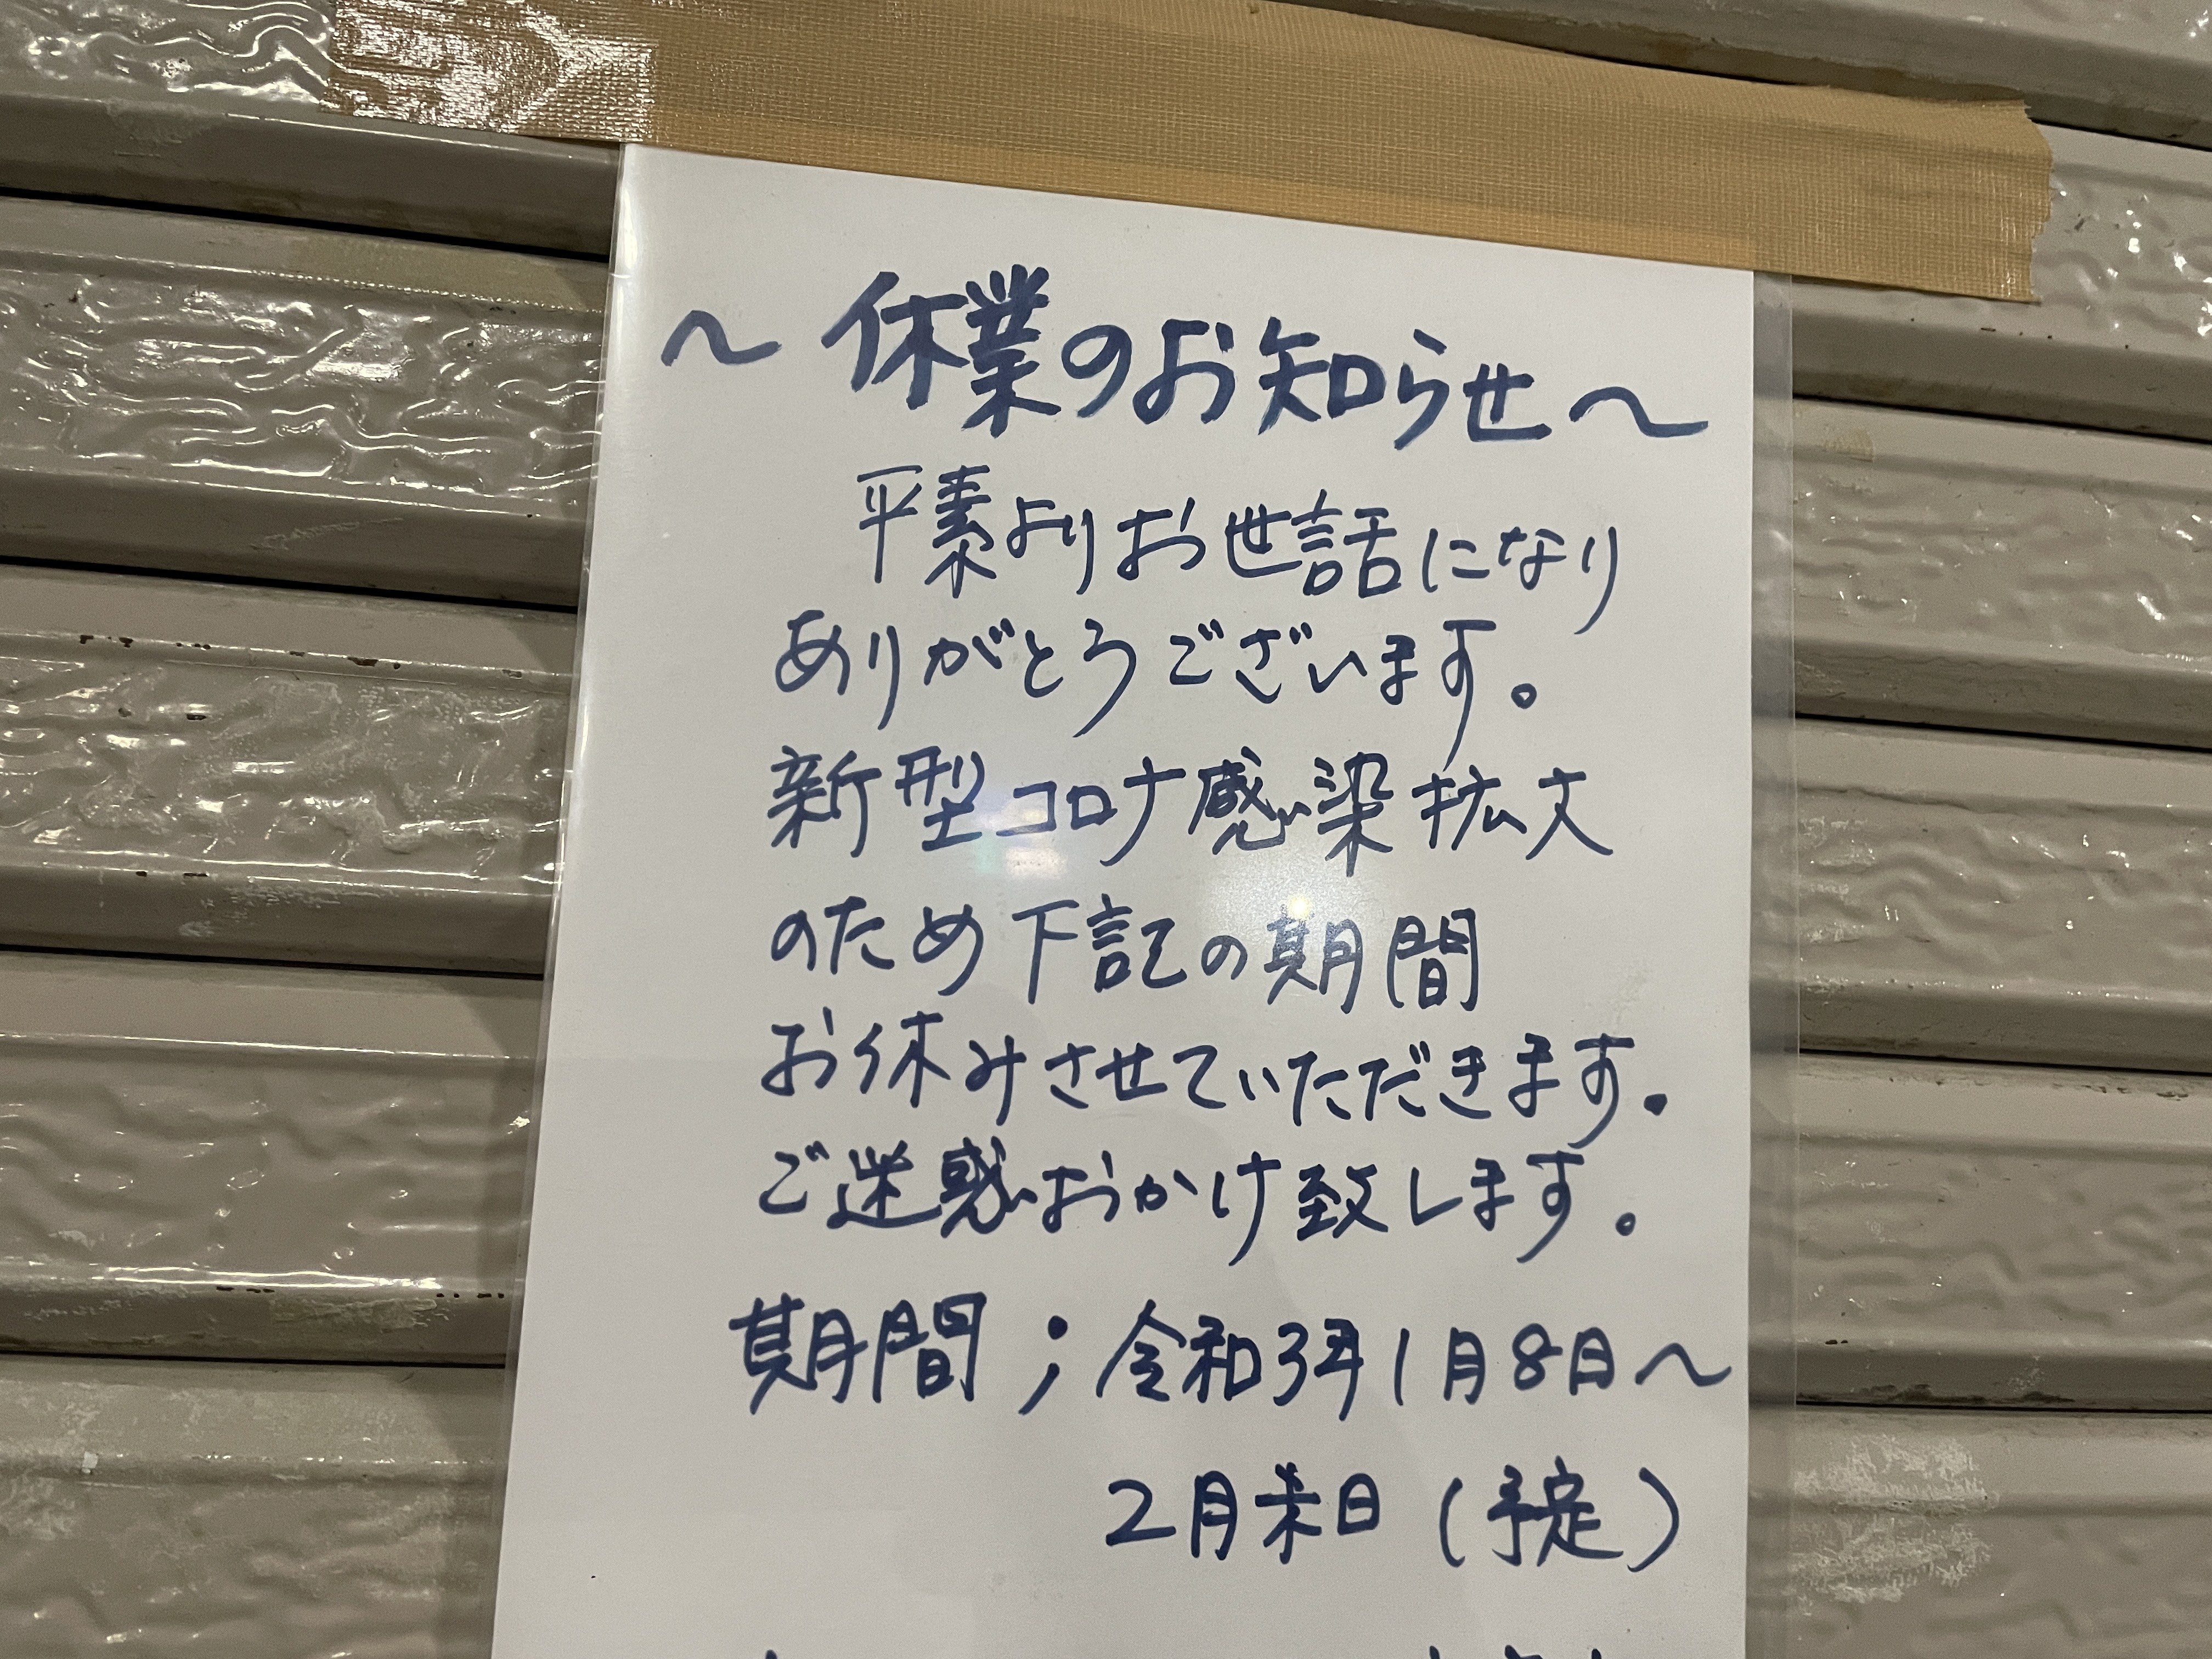 ～休業のお知らせ～
平素よりお世話になり
ありがとうございます。
新型コロナ感染拡大
のため下記の期間
お休みさせていただきます。
ご迷惑おかけ致します。
期間；令和3年1月8日～
2月末日(予定)